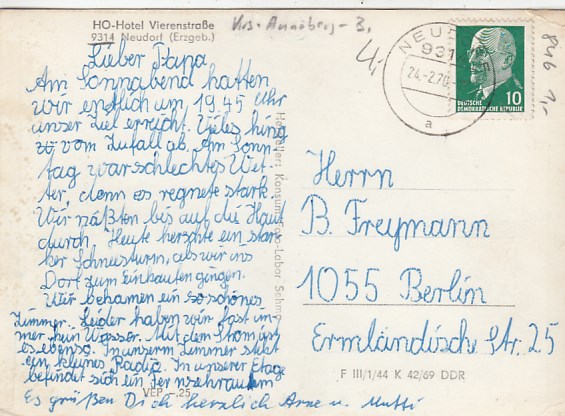 HO-Hotel Vierenstraße
9314 Neudorf (Erzgeb.)
Krs. Annaberg-B.
Lieber Papa
Am Sonnabend hatten
wir endlich um 19.45 Uhr
unser Ziel erreicht. Vieles hing
vom Zufall ab. Am Sonn-
tag war schlechtes Wet-
ter, denn es regnete stark.
Wir näßten bis auf die Haut
durch. Heute herschte ein star-
ker Schneesturm, als wir ins
Dorf zum Einkaufen gingen.
Wir bekamen ein so schönes
Zimmer. Leider haben wir fast im-
mer kein Wasser. Mit dem Strom ist
es ebenso. In unserm Zimmer steht
ein kleines Radio. In unserer Etage
befindet sich ein Fernsehraum
Es grüßen Dich herzlich Arne u. Mutti
VEB 25
Hersteller: Konsum-Foto-Labor
NEUD
931
24.-2.70
a
10
DEUTSCHE
DEMOKRATISCHE REPUBLIK
846 1,-
Herrn
B. Freymann
1055 Berlin
Ermländische Str. 25
F III/1/44 K 42/69 DDR